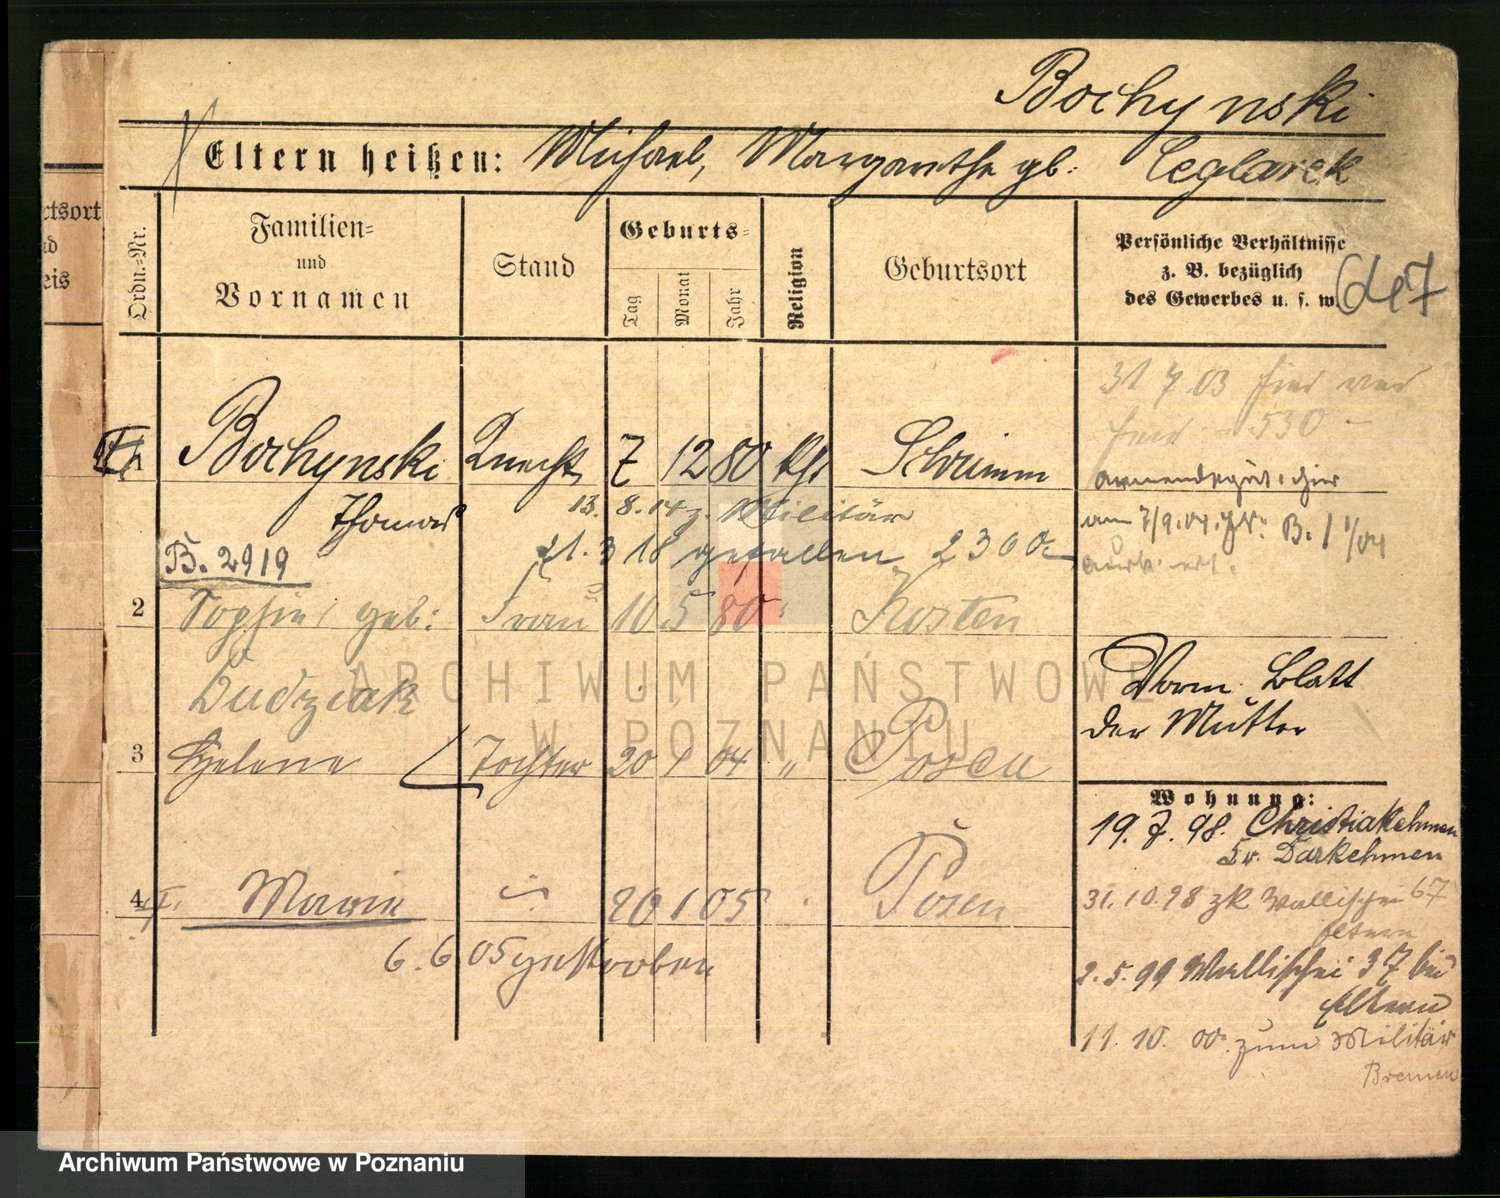 Bochynski
Eltern heißen: Michael, Margarethe gb. Ceglarek
ctsort
nd
eis
Ordn.-Nr.
Familien-
und
Vornamen
Stand
Geburts-
Tag
Monat
Jahr
Religion
Geburtsort
Persönliche Verhältnisse
z. B. bezüglich
des Gewerbes u. s. w.
31 7 03 hier
530
1 Bochynski Knecht 7 12 80 kth Schrimm
Thomas
13. 8. 14 z. Militär
21. 3 18 gefallen 2300
B. 2919
am 7/9.04. B. 1 1/04
2 Sophie geb: Frau 10 5 80 Kosten
Dudziak
Vorm. Blatt
der Mutter
3 Helene Tochter 20 1 04 " Posen
Wohnung:
19. 7. 98. Christiankehmen
Kr. Darkehmen
4 Marie 20 1 05 Posen
6. 6 05 gestorben
31. 10. 98 zk Wallischei 67
Eltern
2. 5. 99 Wallischei 37 bei
Eltern
11. 10. 00 zum Militär
Bremen
ARCHIWUM PAŃSTWOWE
W POZNANIU
Archiwum Państwowe w Poznaniu